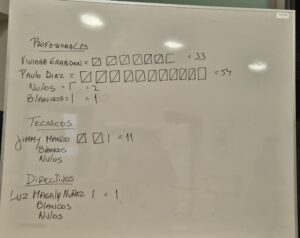 PROFESIONALES
VIVIANA GRANDON = = 33
PAULO DIAZ = = 54
NULOS = = 2
BLANCOS = | = 1
TECNICOS
JIMMY MANZO | = 11
BLANCOS
NULOS
DIRECTIVOS
LUZ MAGALY NUÑEZ | = 1
BLANCOS
NULOS